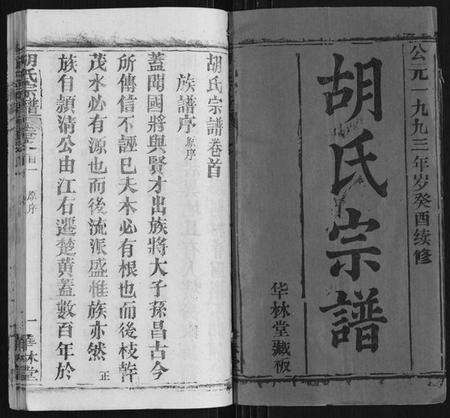 公元一九九三年岁癸酉续修
胡氏宗譜
华林堂藏板
胡氏宗譜卷首
族譜序 原序
蓋聞國將興賢才出族將大子孫昌古今
所傳信不誣巳夫木必有根也而後枝幹
茂水必有源也而後流派盛惟族亦然 正
族自顯清公由江右遷楚黃蓋數百年於
胡氏宗譜
原序
一 華林堂